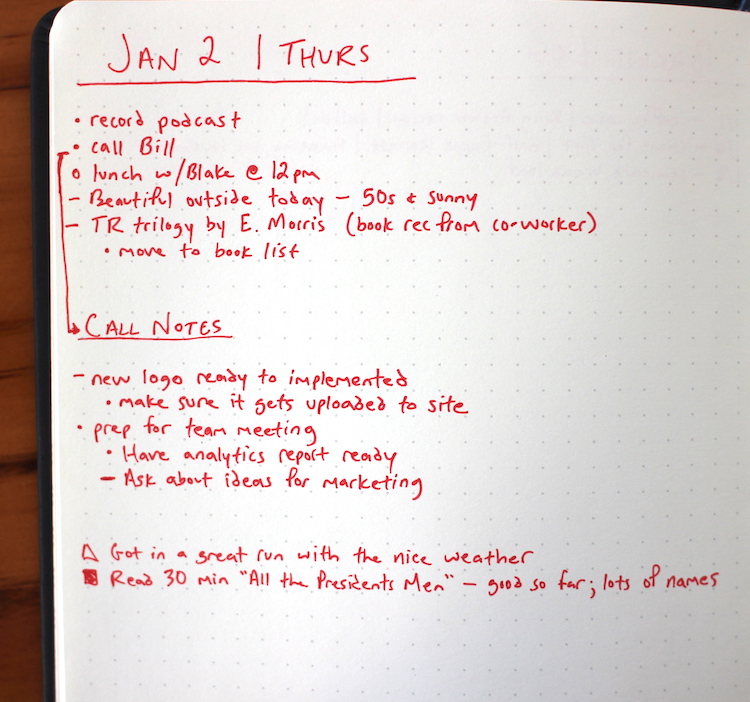 JAN 2 | THURS
• record podcast
• call Bill
o lunch w/Blake @ 12pm
- Beautiful outside today - 50s & sunny
- TR trilogy by E. Morris (book rec from co-worker)
• move to book list
CALL NOTES
- new logo ready to implemented
• make sure it gets uploaded to site
• prep for team meeting
• Have analytics report ready
- Ask about ideas for marketing
△ Got in a great run with the nice weather
■ Read 30 min "All the Presidents Men" - good so far; lots of names